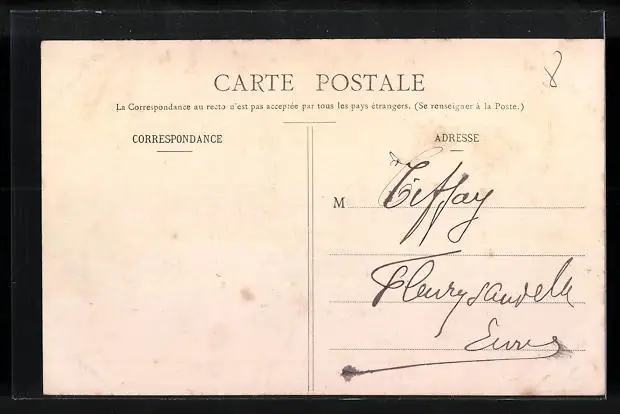 8
CARTE POSTALE
La Correspondance au recto n'est pas acceptée par tous les pays étrangers. (Se renseigner à la Poste.)
CORRESPONDANCE
ADRESSE
M Tiffay
Fleury s andelle
Eure